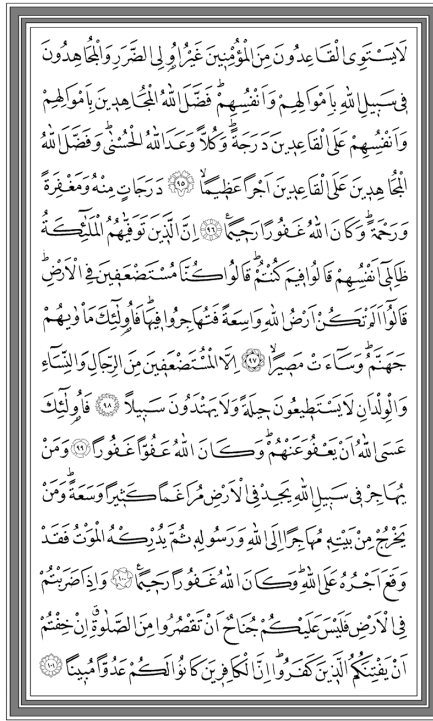 لَا يَسْتَوِى الْقَاعِدُونَ مِنَ الْمُؤْمِنٖينَ غَيْرُ اُولِى الضَّرَرِ وَالْمُجَاهِدُونَ
فٖى سَبٖيلِ اللّٰهِ بِاَمْوَالِهِمْ وَاَنْفُسِهِمْؕ فَضَّلَ اللّٰهُ الْمُجَاهِدٖينَ بِاَمْوَالِهِمْ
وَاَنْفُسِهِمْ عَلَى الْقَاعِدٖينَ دَرَجَةًؕ وَكُلًّا وَعَدَ اللّٰهُ الْحُسْنٰىؕ وَفَضَّلَ اللّٰهُ
الْمُجَاهِدٖينَ عَلَى الْقَاعِدٖينَ اَجْرًا عَظٖيمًاۙ ﴿٩٥﴾ دَرَجَاتٍ مِنْهُ وَمَغْفِرَةً
وَرَحْمَةًؕ وَكَانَ اللّٰهُ غَفُورًا رَحٖيمًاࣖ ﴿٩٦﴾ اِنَّ الَّذٖينَ تَوَفّٰيهُمُ الْمَلٰٓئِكَةُ
ظَالِمٖٓى اَنْفُسِهِمْ قَالُوا فٖيمَ كُنْتُمْؕ قَالُوا كُنَّا مُسْتَضْعَفٖينَ فِى الْاَرْضِؕ
قَالُٓوا اَلَمْ تَكُنْ اَرْضُ اللّٰهِ وَاسِعَةً فَتُهَاجِرُوا فٖيهَاؕ فَاُولٰٓئِكَ مَاْوٰيهُمْ
جَهَنَّمُؕ وَسَٓاءَتْ مَصٖيرًاۙ ﴿٩٧﴾ اِلَّا الْمُسْتَضْعَفٖينَ مِنَ الرِّجَالِ وَالنِّسَٓاءِ
وَالْوِلْدَانِ لَا يَسْتَطٖيعُونَ حٖيلَةً وَلَا يَهْتَدُونَ سَبٖيلًاۙ ﴿٩٨﴾ فَاُولٰٓئِكَ
عَسَى اللّٰهُ اَنْ يَعْفُوَ عَنْهُمْؕ وَكَانَ اللّٰهُ عَفُوًّا غَفُورًا ﴿٩٩﴾ وَمَنْ
يُهَاجِرْ فٖى سَبٖيلِ اللّٰهِ يَجِدْ فِى الْاَرْضِ مُرَاغَمًا كَثٖيرًا وَسَعَةًؕ وَمَنْ
يَخْرُجْ مِنْ بَيْتِهٖ مُهَاجِرًا اِلَى اللّٰهِ وَرَسُولِهٖ ثُمَّ يُدْرِكْهُ الْمَوْتُ فَقَدْ
وَقَعَ اَجْرُهُ عَلَى اللّٰهِؕ وَكَانَ اللّٰهُ غَفُورًا رَحٖيمًاࣖ ﴿١٠٠﴾ وَاِذَا ضَرَبْتُمْ
فِى الْاَرْضِ فَلَيْسَ عَلَيْكُمْ جُنَاحٌ اَنْ تَقْصُرُوا مِنَ الصَّلٰوةِۗ اِنْ خِفْتُمْ
اَنْ يَفْتِنَكُمُ الَّذٖينَ كَفَرُواؕ اِنَّ الْكَافِرٖينَ كَانُوا لَكُمْ عَدُوًّا مُبٖينًا ﴿١٠١﴾